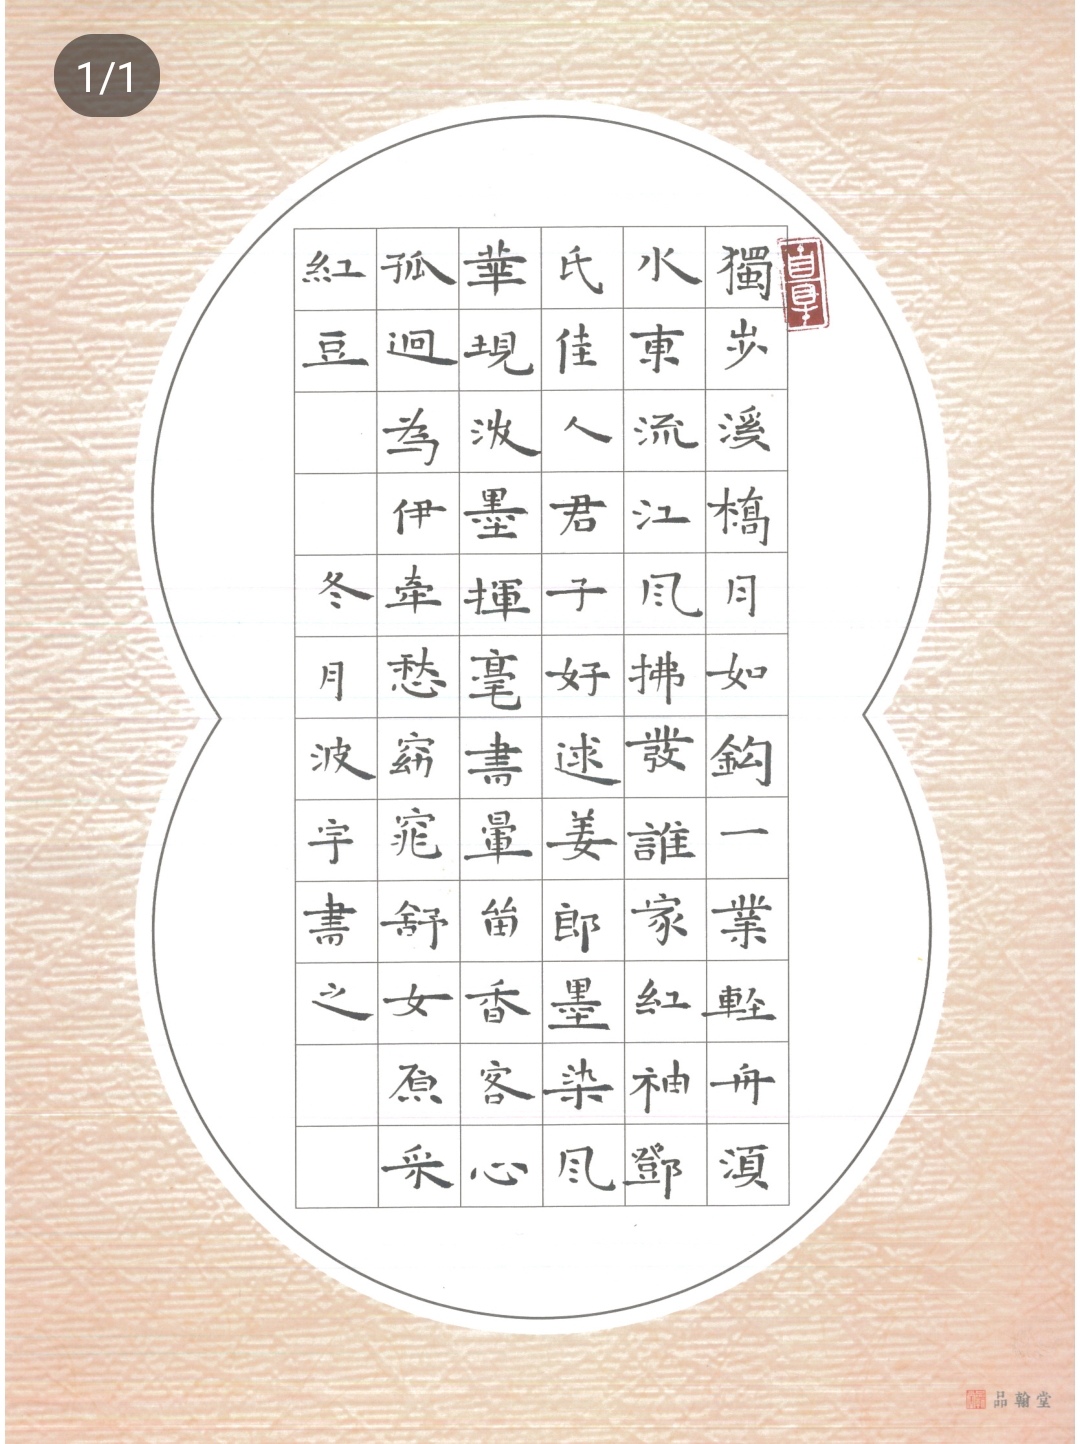 1/1
獨步溪橋月如鈎一業輕舟湏
水東流江風拂發誰家紅袖鄧
氏佳人君子好逑姜郎墨染風
華現波墨揮毫書暈笛香客心
孤迥為伊牽愁窈窕舒女原采
紅豆 冬月波宇書之
品翰堂